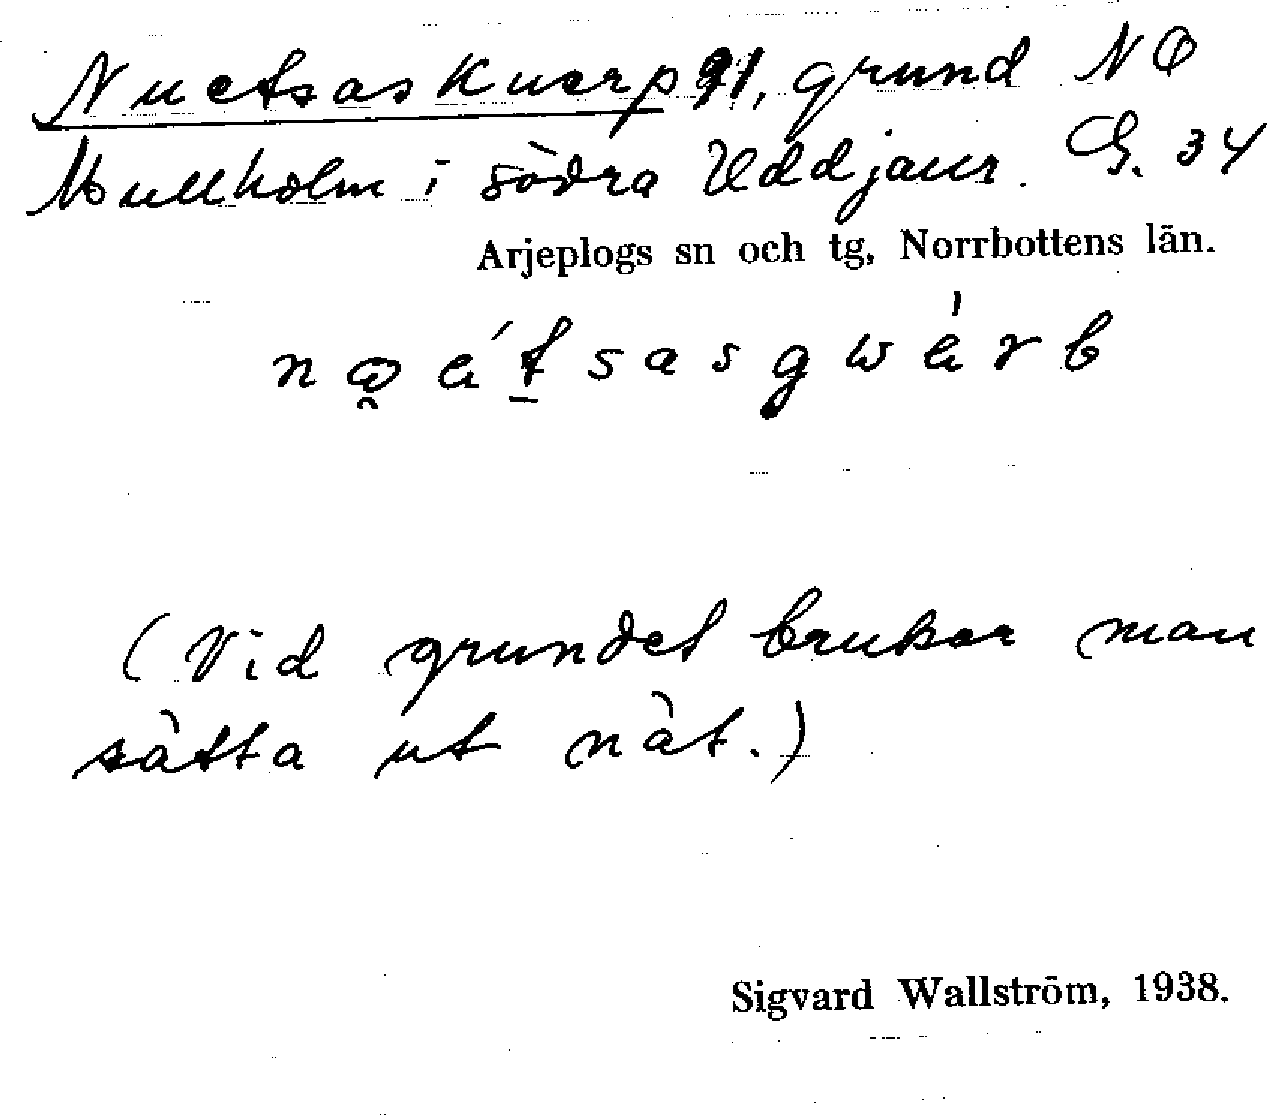 Nuetsaskuerp 91, grund NO
Mullholm i södra Uddjaur. G. 34
Arjeplogs sn och tg, Norrbottens län.
(Vid grundet brukar man
sätta ut nät.)
Sigvard Wallström, 1938.